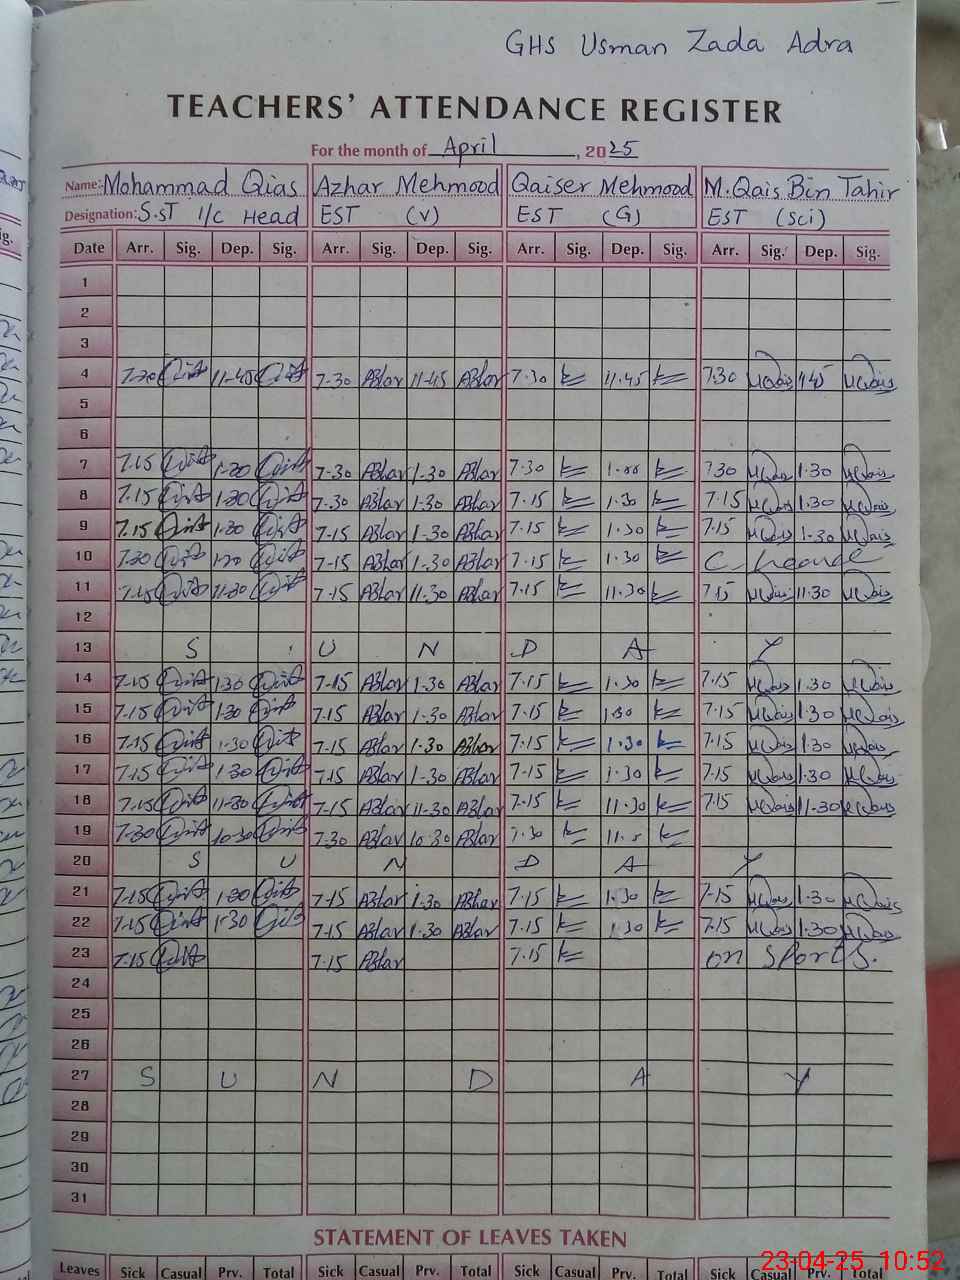 GHS Usman Zada Adra
TEACHERS' ATTENDANCE REGISTER
For the month of April, 2025
Name: Mohammad Qias Azhar Mehmood Qaiser Mehmood M. Qais Bin Tahir
Designation: S.ST I/C Head EST (V) EST (G) EST (Sci)
Date Arr. Sig. Dep. Sig. Arr. Sig. Dep. Sig. Arr. Sig. Dep. Sig. Arr. Sig. Dep. Sig.
1
2
3
4 7-30 11-45 7-30 Azhar 11-45 Azhar 7-30 11.45 7.30 MQais MQais
5
6
7 7-15 1-30 7-30 Azhar 1-30 Azhar 7-30 7.30 MQais 1.30 MQais
8 7-15 1-30 7-30 Azhar 1-30 Azhar 7-15 1.30 7-15 MQais 1.30 MQais
9 7.15 1-30 7-15 Azhar 1-30 Azhar 7-15 1.30 7.15 MQais 1.30 MQais
10 7-30 7-15 Azhar 1-30 Azhar 7-15 1.30 C
11 7-15 11-30 7-15 Azhar 11.30 Azhar 7.15 11.30 7.15 MQais 11.30 MQais
12
13 S U N D A Y
14 7-15 1-30 7-15 Azhar 1-30 Azhar 7-15 1.30 7.15 MQais 1.30 MQais
15 7-15 1-30 7-15 Azhar 1-30 Azhar 7-15 1.30 7-15 MQais 1.30 MQais
16 7-15 1-30 7-15 Azhar 1-30 Azhar 7-15 1.30 7.15 MQais 1.30 MQais
17 7-15 1-30 7-15 Azhar 1-30 Azhar 7-15 1.30 7-15 MQais 1-30 MQais
18 7-15 11-30 7-15 Azhar 11-30 Azhar 7-15 11.30 7.15 MQais 11-30 MQais
19 7-30 10-30 7-30 Azhar 10-30 Azhar 7.30
20 S U N D A Y
21 7-15 1-30 7-15 Azhar 1-30 Azhar 7-15 1.30 7-15 MQais 1.30 MQais
22 7-15 1-30 7-15 Azhar 1-30 Azhar 7-15 1.30 7-15 MQais 1.30 MQais
23 7-15 7-15 Azhar 7-15 on sports.
24
25
26
27 S U N D A Y
28
29
30
31
STATEMENT OF LEAVES TAKEN
Leaves Sick Casual Prv. Total Sick Casual Prv. Total Sick Casual Prv. Total Sick Casual Prv. Total
23-04-25 10:52